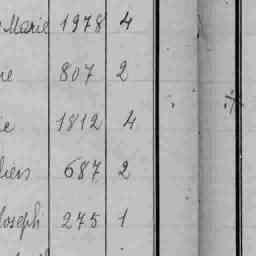 Marie 1978 4
807 2
1812 4
687 2
Joseph 275 1